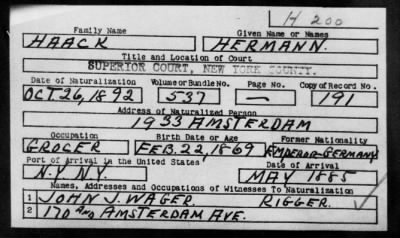 H 200
Family Name Given Name or Names
HAACK HERMANN.
Title and Location of Court
SUPERIOR COURT, NEW YORK COUNTY.
Date of Naturalization Volume or Bundle No. Page No. Copy of Record No.
OCT. 26, 1892 537 — 191
Address of Naturalized Person
1933 AMSTERDAM
Occupation Birth Date or Age Former Nationality
GROCER FEB. 22, 1869 EMPEROR-GERMANY
Port of Arrival in the United States Date of Arrival
N.Y. N.Y. MAY 1885
Names, Addresses and Occupations of Witnesses To Naturalization
1 JOHN J. WAGER. RIGGER.
2 170 AND AMSTERDAM AVE.